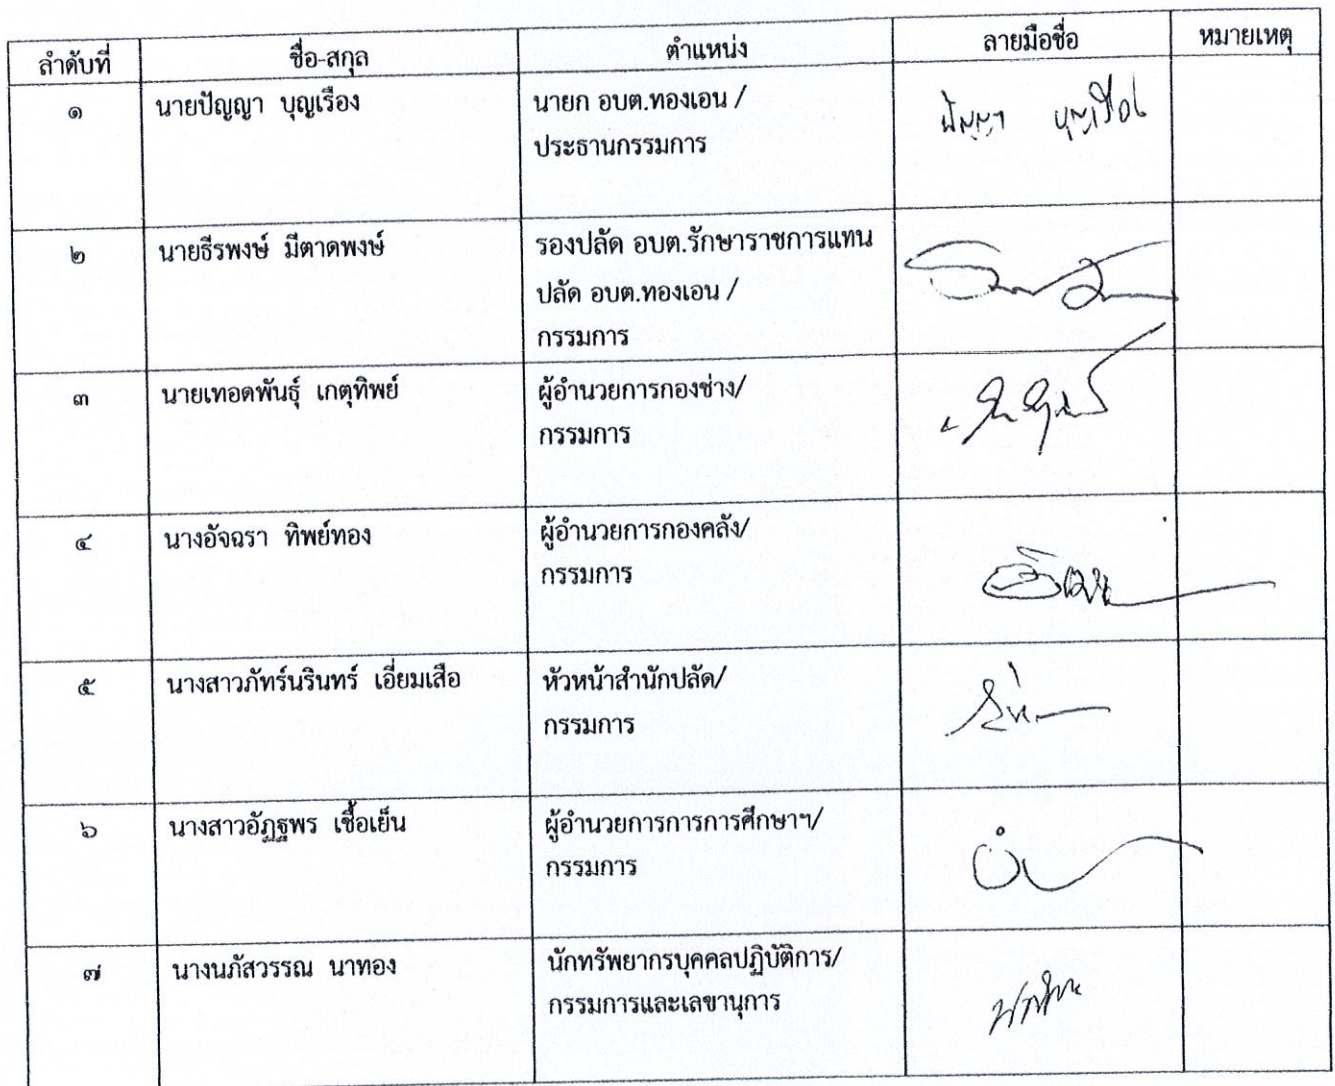 ลำดับที่ ชื่อ-สกุล ตำแหน่ง ลายมือชื่อ หมายเหตุ
๑ นายปัญญา บุญเรือง นายก อบต.ทองเอน / ปัญญา บุญเรือง
ประธานกรรมการ
๒ นายธีรพงษ์ มีตาดพงษ์ รองปลัด อบต.รักษาราชการแทน
ปลัด อบต.ทองเอน /
กรรมการ
๓ นายเทอดพันธุ์ เกตุทิพย์ ผู้อำนวยการกองช่าง/
กรรมการ
๔ นางอัจฉรา ทิพย์ทอง ผู้อำนวยการกองคลัง/
กรรมการ
๕ นางสาวภัทร์นรินทร์ เอี่ยมเสือ หัวหน้าสำนักปลัด/
กรรมการ
๖ นางสาวอัฏฐพร เชื้อเย็น ผู้อำนวยการการการศึกษาฯ/
กรรมการ
๗ นางนภัสวรรณ นาทอง นักทรัพยากรบุคคลปฏิบัติการ/
กรรมการและเลขานุการ